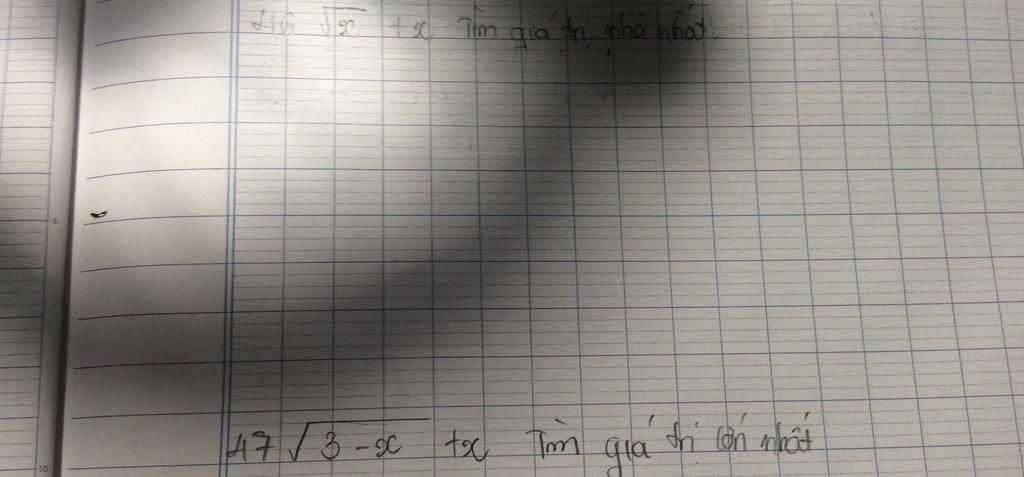 46 √x + x Tìm giá trị nhỏ nhất
47 √3-x +x Tìm giá trị lớn nhất